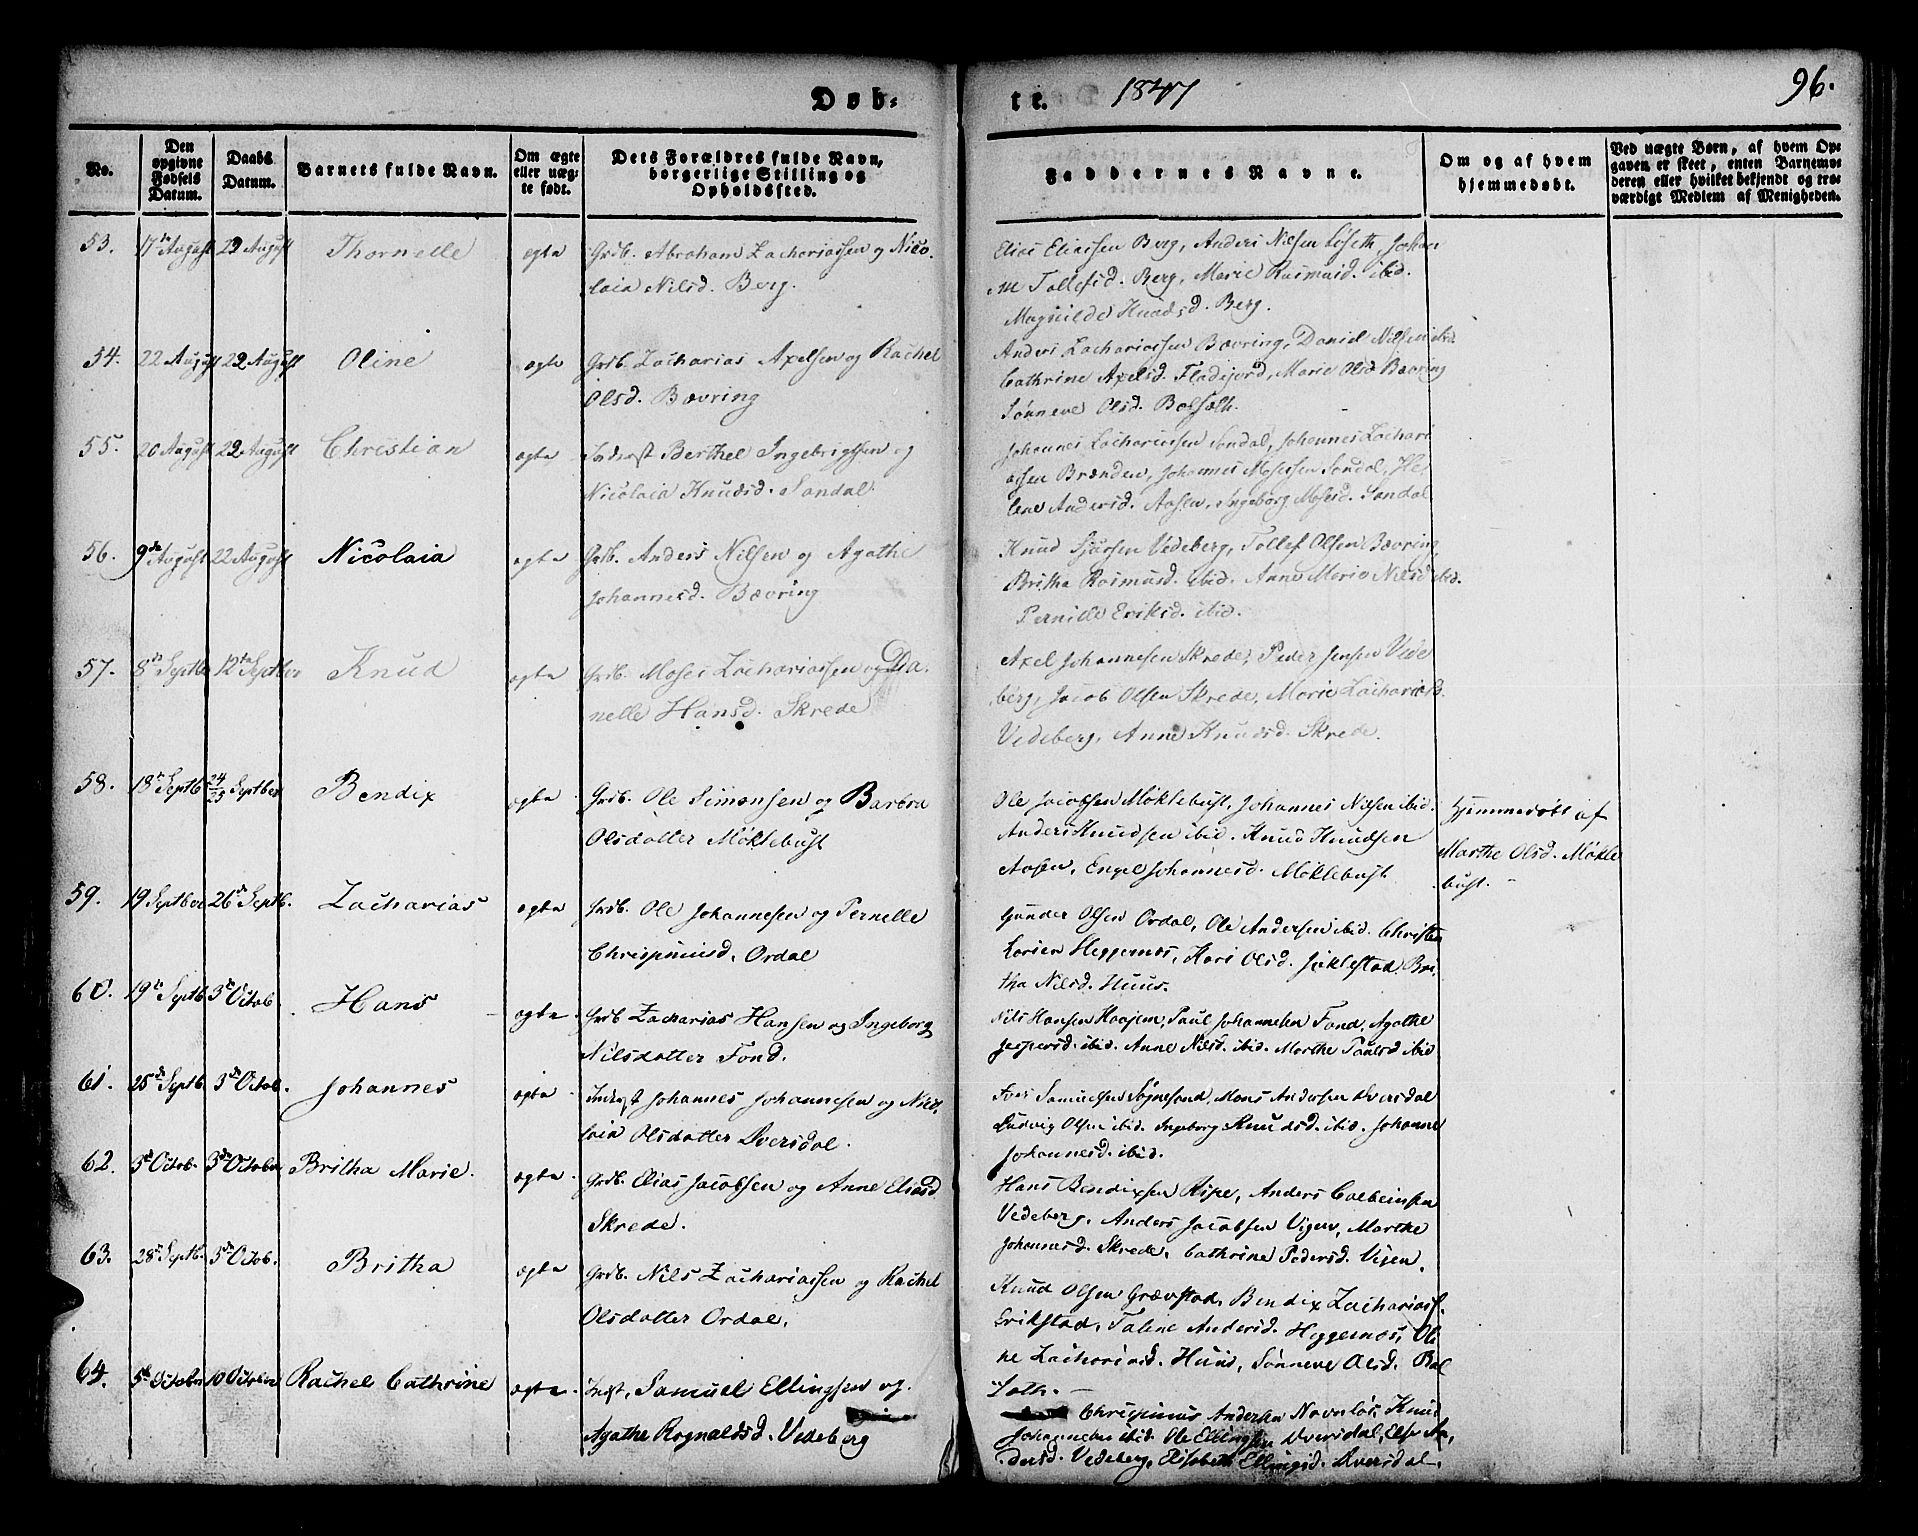 Døb-
te. 1847
96.
No.
Den opgivne Fødsels Datum.
Daabs Datum.
Barnets fulde Navn.
Om ægte eller uægte født.
Dets Forældres fulde Navn, borgerlige Stilling og Opholdssted.
Faddernes Navne.
Om og af hvem hjemmedøbt.
Ved uægte Børn, af hvem Opgaven er skeet, enten Barnemoderen eller hvilket bekjendt og troværdigt Medlem af Menigheden.
53. 17de August 22 August Thornelle ægte Grdb. Abraham Zachariassen og Nico-
laia Nilsd. Berg.
Elias Eliassen Berg, Anders Nilsen Løseth, Johan
M Tollefsd. Berg, Marie Rasmusd. ibid.
Magnilde Knudsd. Berg.
54. 22 August 22 August Oline ægte Grdb. Zacharias Axelsen og Rachel
Olsd. Bævring
Anders Zachariassen Bævring, Daniel Nilsen ibid.
Cathrine Axelsd. Fladejord, Marie Olsd. Bævring
Sønneve Olsd. Bolsæth.
55. 20 August 22 August Christian ægte Inderst Berthel Ingebrigtsen og
Nicolaia Knudsd. Sandal.
Johannes Zachariassen Sandal, Johannes Zachari
assen Brænden, Johannes Mosessen Sandal, He
lene Andersd. Aasen, Ingeborg Mosesd. Sandal
56. 9de August 22 August Nicolaia ægte Grdb. Anders Nilsen og Agathe
Johannesd. Bævring
Knud Vedeberg, Tollef Olsen Bævring,
Britha Rasmusd. ibid. Anne Marie Nilsd. ibid.
Pernille Eriksd. ibid.
57. 8de Septbr 12te Septbr Knud ægte Grdb. Moses Zachariassen og Da-
nelle Hansd. Skrede
Axel Johannesen Skrede, Peder Jensen Vede
berg, Jacob Olsen Skrede, Marie Zachariasd.
Vedeberg, Anne Knudsd. Skrede.
58. 18de Septb. 24/25 Septber Bendix ægte Grdb. Ole Simonsen og Barbra
Olsdatter Møklebust
Ole Jacobsen Møklebust, Johannes Nilsen ibid.
Anders Knudsen ibid. Knud Knudsen
Aasen, Engel Johannesd. Møklebust
Hjemmedøbt af
Marthe Olsd. Møkle
bust.
59. 19 Septber 26de Septb. Zacharias ægte Grdb. Ole Johannesen og Pernelle
Chrispinusd. Ordal
Gunder Olsen Ordal, Ole Andersen ibid. Christen
Larsen Heggernæs, Kari Olsd. Jiklestad, Bri-
tha Nilsd. Huus.
60. 19de Septb. 3de Octob. Hans ægte Grdb Zacharias Hansen og Ingeborg
Nilsdatter Fond.
Nils Hansen Haajem, Paul Johannesen Fond, Agathe
Jespersd. ibid. Anne Nilsd. ibid. Marthe Paulsd. ibid.
61. 25de Septb. 3de Octob. Johannes ægte Inderst Johannes Johannesen og Nico-
laia Olsdatter Dversdal.
Iver Samuelsen Sognesand, Mons Andersen Dversdal
Ludvig Olsen ibid. Ingeborg Knudsd. ibid. Johanne
Johannesd. ibid.
62. 3de Octob. 3de October Britha Marie. ægte Grdb. Elias Jacobsen og Anne Eliasd
Skrede.
Hans Bendixsen Ripe, Anders Colbeinsen
Vedeberg, Anders Jacobsen Vigen, Marthe
Johannesd. Skrede, Cathrine Pedersd. Vigen.
63. 28de Septb. 3de Octob. Britha ægte Grdb. Nils Zachariassen og Rachel
Olsdatter Ordal.
Knud Olsen Grævstad, Bendix Zachariass.
Erikstad, Talene Andersd. Heggernæs, Oli
ne Zachariasd. Huus, Sønneve Olsd. Bol
sæth.
64. 5de October 10 October Rachel Cathrine ægte Indst. Samuel Ellingsen og
Agathe Rognaldsd. Vedeberg
Chrispinus Andersen Navnløs, Knud
Johannesen ibid. Ole Ellingsen Dversdal, Else An-
dersd. Vedeberg, Elisabeth Ellingsd. Dversdal.